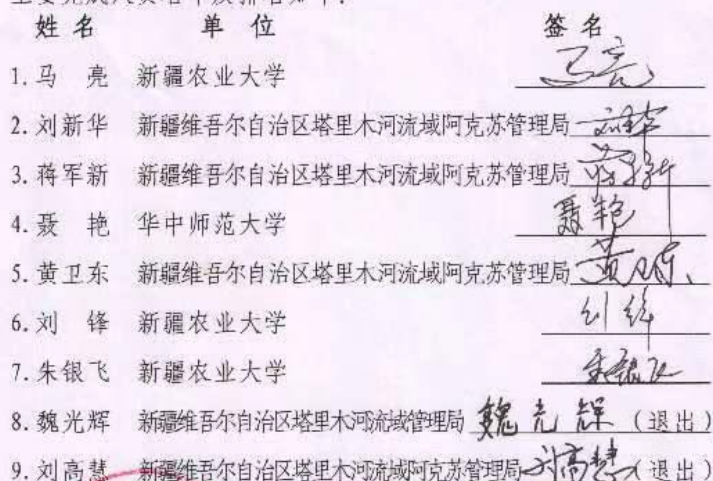 姓名 单位 签名
1.马 亮 新疆农业大学 马亮
2.刘新华 新疆维吾尔自治区塔里木河流域阿克苏管理局 刘新华
3.蒋军新 新疆维吾尔自治区塔里木河流域阿克苏管理局 蒋军新
4.聂 艳 华中师范大学 聂艳
5.黄卫东 新疆维吾尔自治区塔里木河流域阿克苏管理局 黄卫东
6.刘 锋 新疆农业大学 刘锋
7.朱银飞 新疆农业大学 朱银飞
8.魏光辉 新疆维吾尔自治区塔里木河流域管理局 魏光辉 (退出)
9.刘高慧 新疆维吾尔自治区塔里木河流域阿克苏管理局 刘高慧 (退出)